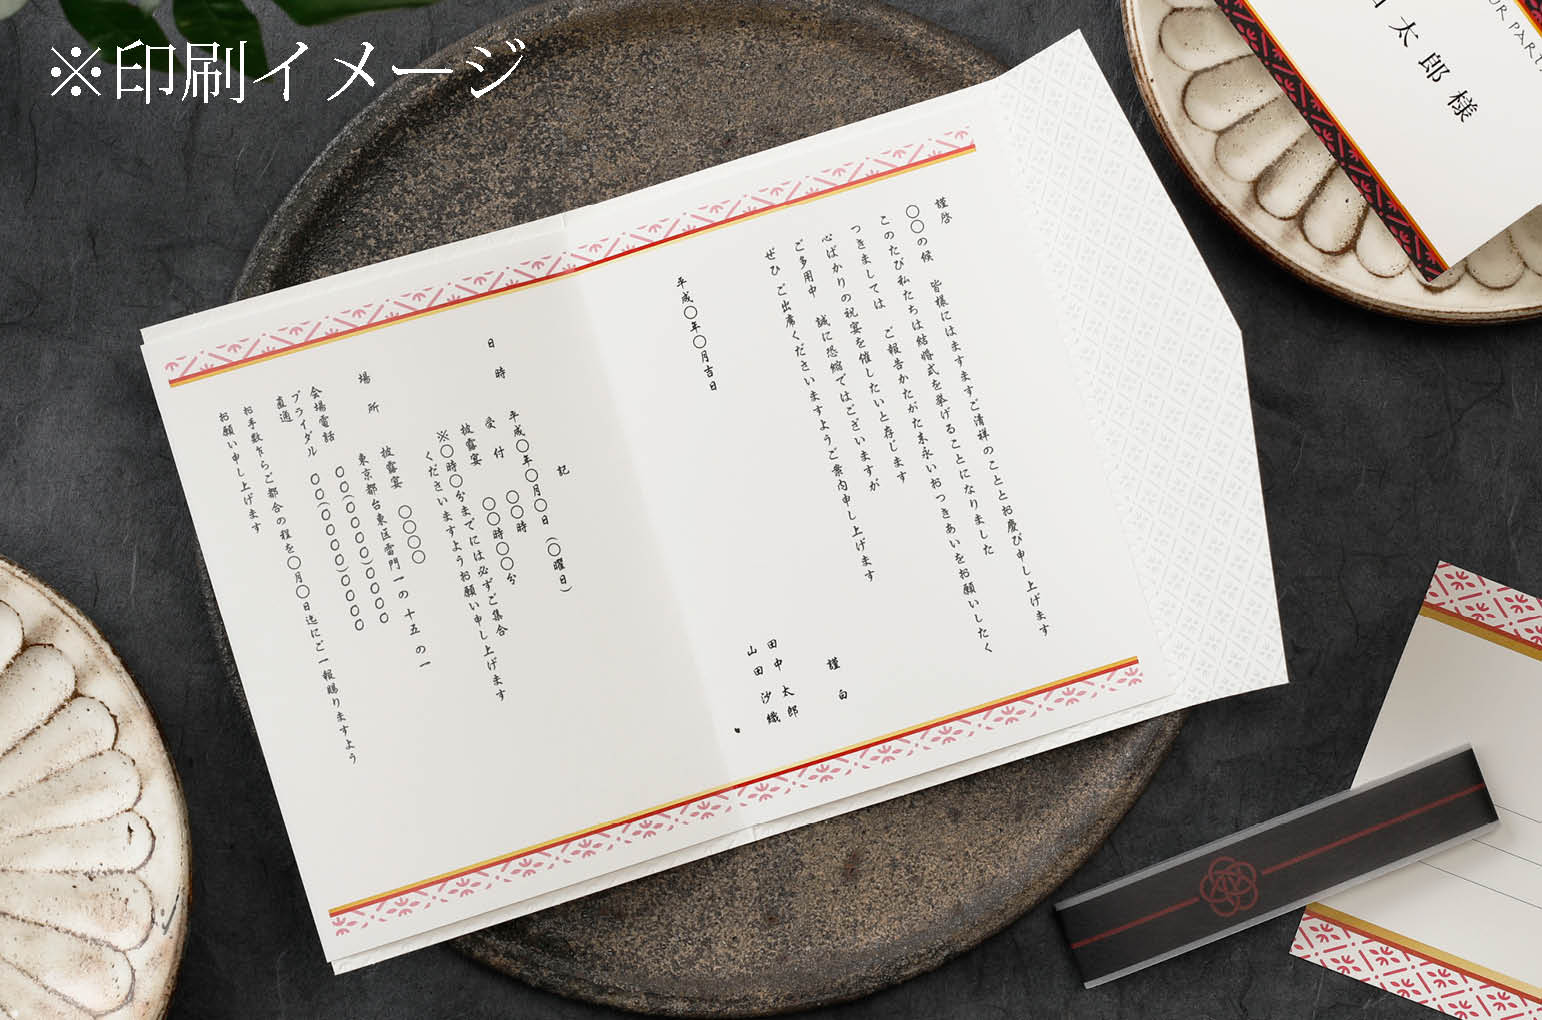 ※印刷イメージ
謹啓
〇〇の候　皆様にはますますご清祥のこととお慶び申し上げます
このたび私たちは結婚式を挙げることになりました
つきましては　ご報告かたがた末永いおつきあいをお願いしたく
心ばかりの祝宴を催したいと存じます
ご多用中　誠に恐縮ではございますが
ぜひ ご出席くださいますようご案内申し上げます
謹白
平成〇年〇月吉日
田中 太郎
山田 沙織
記
日時　平成〇年〇月〇日（〇曜日）
〇〇時
受付　〇〇時〇〇分
披露宴
※〇時〇分までには必ずご集合
くださいますようお願い申し上げます
場所　披露宴　〇〇〇〇
東京都台東区雷門一の十五の一
会場電話　〇〇(〇〇〇〇)〇〇〇〇
ブライダル　〇〇(〇〇〇〇)〇〇〇〇
直通
お手数ながらご都合の程を〇月〇日迄にご一報賜りますよう
お願い申し上げます
太郎様
OUR PARTY